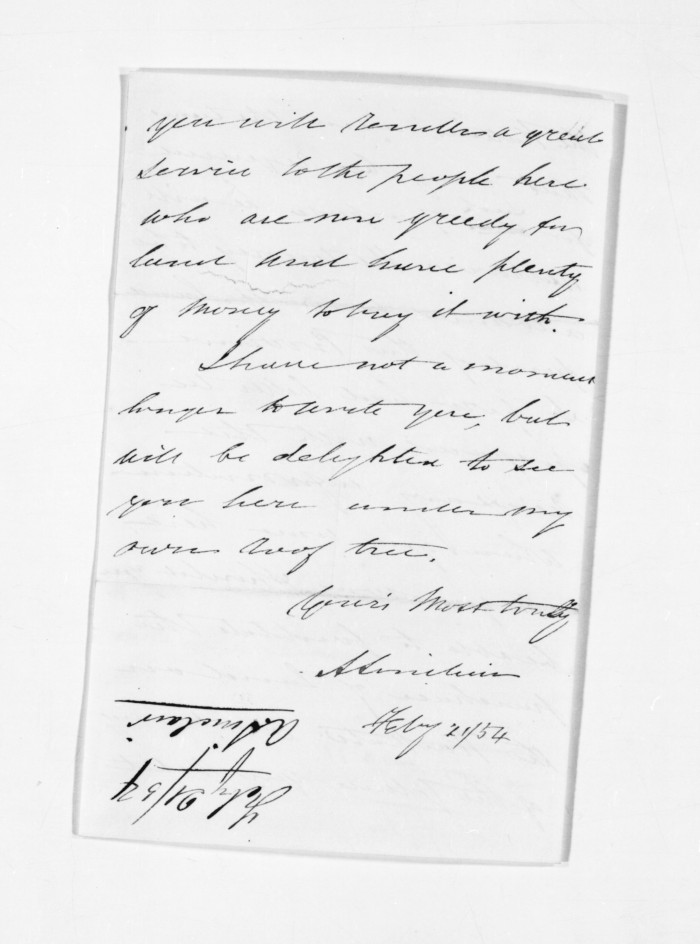 you will render a great
service to the people here
who are now greedy for
land and have plenty
of money to buy it with.
I have not a moment
longer to write you, but
will be delighted to see
you here under my
own roof tree.
Yours Most truly
A Sinclair
Feby 21/54
A Sinclair
Feby 21/54